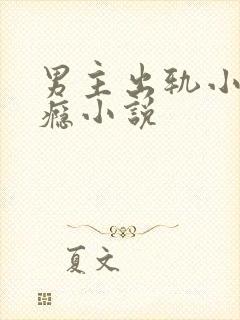 男主出轨小
瘾小說
夏文